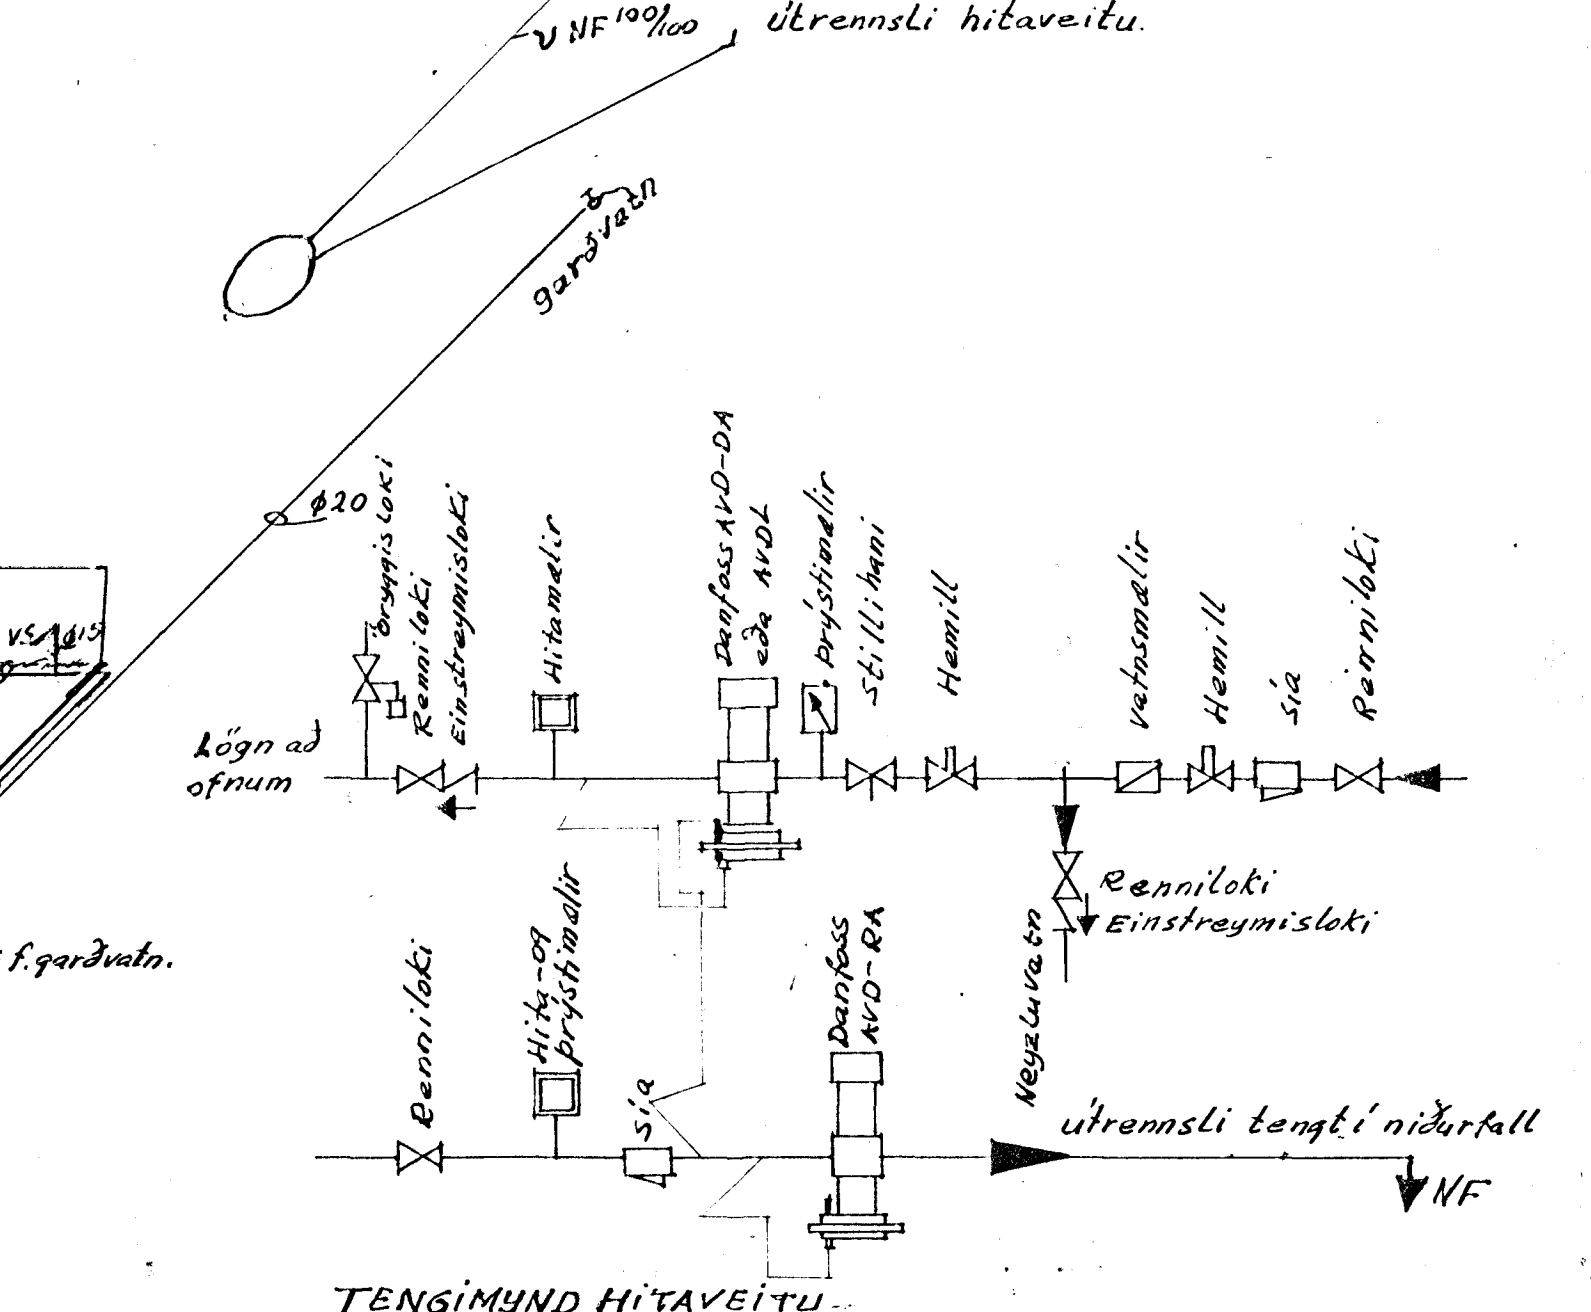 NF 100/100
útrennsli hitaveitu.
garðvatn
ø20
V.S. ø15
f. garðvatn.
Lögn að
ofnum
Öryggisloki
Renniloki
Einstreymisloki
Hitamælir
Danfoss AVD-DA
eða AVDL
þrýstimælir
Stillihani
Hemill
Vatnsmælir
Hemill
Sía
Renniloki
Renniloki
Einstreymisloki
Neyzluvatn
Renniloki
Hita-og
þrýstimælir
Sía
Danfoss
AVD-RA
útrennsli tengt í niðurfall
NF
TENGIMYND HITAVEITU